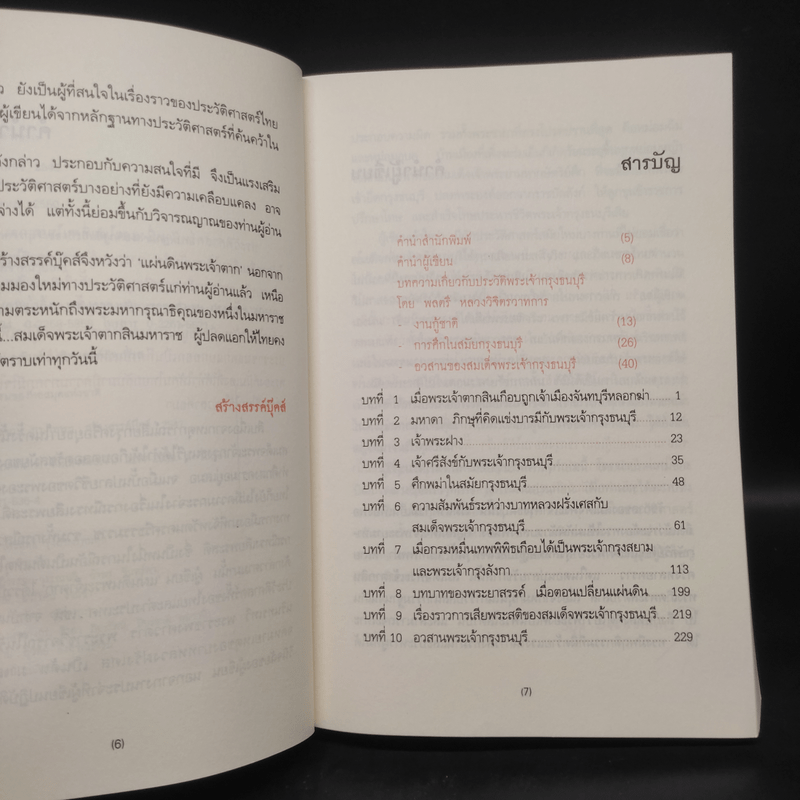 ว ยังเป็นผู้ที่สนใจในเรื่องราวของประวัติศาสตร์ไทย
ผู้เขียนได้จากหลักฐานทางประวัติศาสตร์ที่ค้นคว้าใน
ังกล่าว ประกอบกับความสนใจที่มี จึงเป็นแรงเสริม
ประวัติศาสตร์บางอย่างที่ยังมีความเคลือบแคลง อาจ
ว่างได้ แต่ทั้งนี้ย่อมขึ้นกับวิจารณญาณของท่านผู้อ่าน
ร้างสรรค์บุ๊คส์จึงหวังว่า 'แผ่นดินพระเจ้าตาก' นอกจาก
มมองใหม่ทางประวัติศาสตร์แก่ท่านผู้อ่านแล้ว เหนือ
ามตระหนักถึงพระมหากรุณาธิคุณของหนึ่งในมหาราช
์...สมเด็จพระเจ้าตากสินมหาราช ผู้ปลดแอกให้ไทยคง
ตราบเท่าทุกวันนี้
สร้างสรรค์บุ๊คส์
(6)
สารบัญ
คำนำสำนักพิมพ์ (5)
คำนำผู้เขียน (8)
บทความเกี่ยวกับประวัติพระเจ้ากรุงธนบุรี
โดย พลตรี หลวงวิจิตรวาทการ
- งานกู้ชาติ (13)
- การศึกในสมัยกรุงธนบุรี (26)
- อวสานของสมเด็จพระเจ้ากรุงธนบุรี (40)
บทที่ 1 เมื่อพระเจ้าตากสินเกือบถูกเจ้าเมืองจันทบุรีหลอกฆ่า 1
บทที่ 2 มหาดา ภิกษุที่คิดแข่งบารมีกับพระเจ้ากรุงธนบุรี 12
บทที่ 3 เจ้าพระฝาง 23
บทที่ 4 เจ้าศรีสังข์กับพระเจ้ากรุงธนบุรี 35
บทที่ 5 ศึกพม่าในสมัยกรุงธนบุรี 48
บทที่ 6 ความสัมพันธ์ระหว่างบาทหลวงฝรั่งเศสกับ
สมเด็จพระเจ้ากรุงธนบุรี 61
บทที่ 7 เมื่อกรมหมื่นเทพพิพิธเกือบได้เป็นพระเจ้ากรุงสยาม
และพระเจ้ากรุงลังกา 113
บทที่ 8 บทบาทของพระยาสรรค์ เมื่อตอนเปลี่ยนแผ่นดิน 199
บทที่ 9 เรื่องราวการเสียพระสติของสมเด็จพระเจ้ากรุงธนบุรี 219
บทที่ 10 อวสานพระเจ้ากรุงธนบุรี 229
(7)